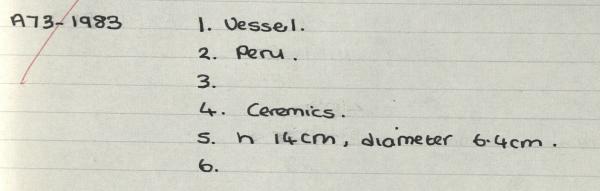 A73-1983 1. Vessel.
2. Peru.
3.
4. Ceramics.
5. h 14cm, diameter 6.4cm.
6.